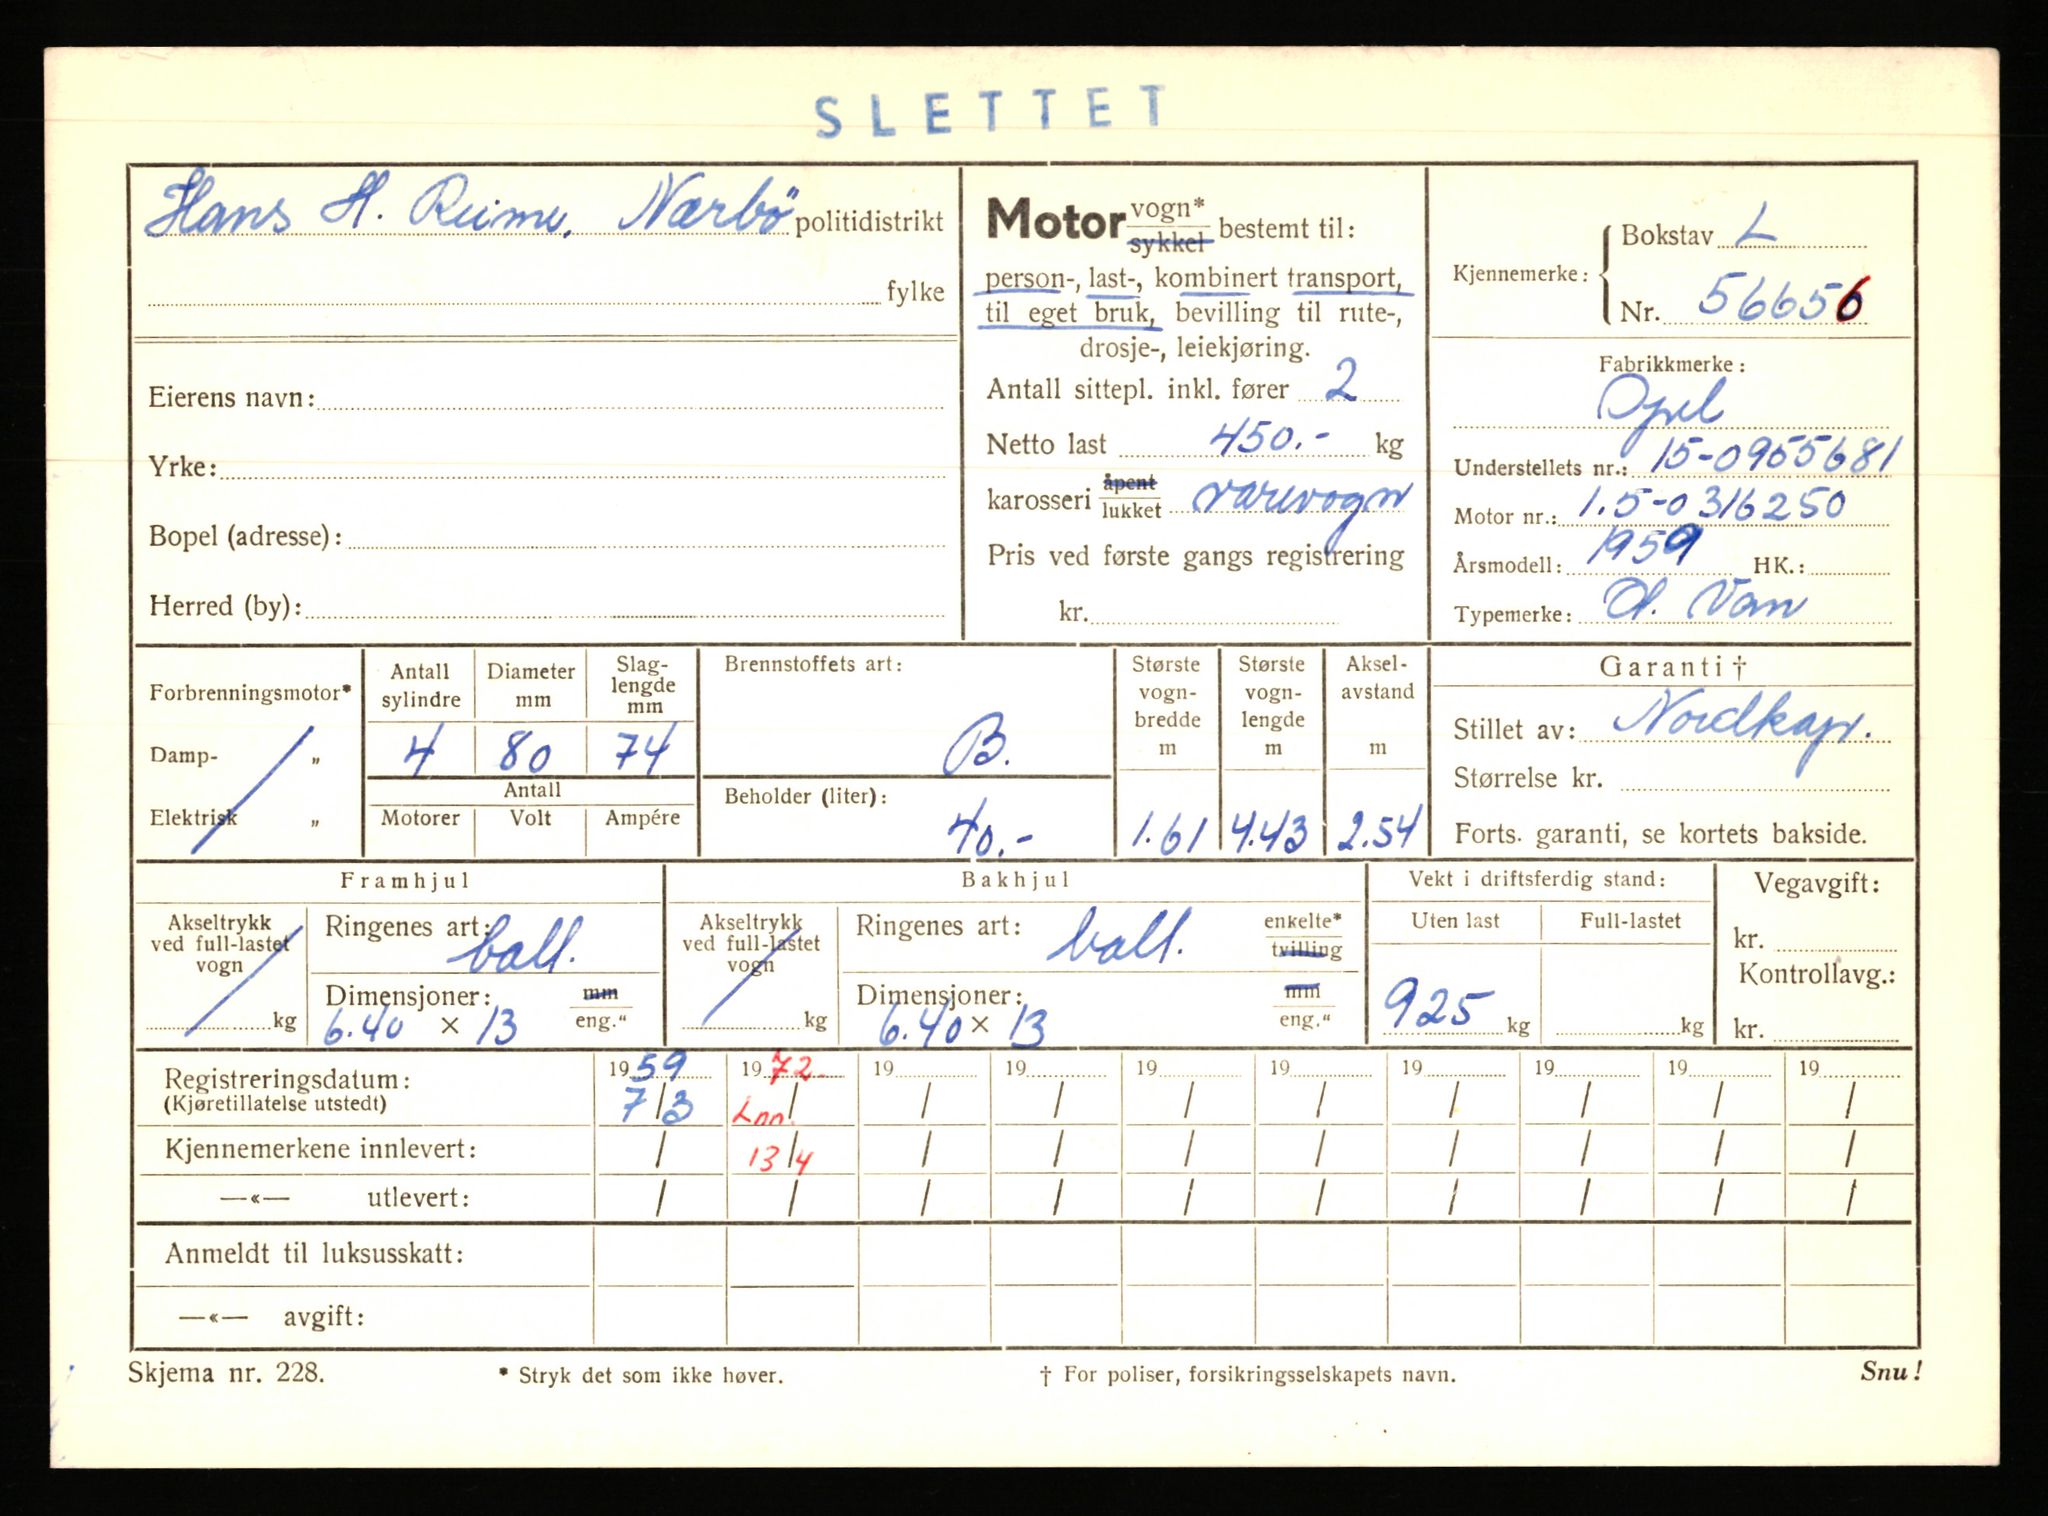 SLETTET
Hans H. Reime, Nærbö politidistrikt
fylke
Eierens navn:
Yrke:
Bopel (adresse):
Herred (by):
Motor vogn* sykkel bestemt til:
person-, last-, kombinert transport,
til eget bruk, bevilling til rute-,
drosje-, leiekjøring.
Antall sittepl. inkl. fører 2
Netto last 450.- kg
karosseri åpent lukket varevogn
Pris ved første gangs registrering
kr.
Kjennemerke: Bokstav L
Nr. 56656
Fabrikkmerke:
Opel
Understellets nr.: 15-0955681
Motor nr.: 1.5-0316250
Årsmodell: 1959 HK.:
Typemerke: Ol. Van
Forbrenningsmotor*
Damp- "
Elektrisk "
Antall sylindre
Diameter mm
Slag-lengde mm
4 80 74
Antall
Motorer Volt Ampére
Brennstoffets art:
B.
Beholder (liter):
40.-
Største vogn-bredde m
1.61
Største vogn-lengde m
4.43
Aksel-avstand m
2.54
Garanti †
Stillet av: Nordkap.
Størrelse kr.
Forts. garanti, se kortets bakside.
Framhjul
Akseltrykk ved full-lastet vogn
kg
Ringenes art: ball.
Dimensjoner: mm eng."
6.40 × 13
Bakhjul
Akseltrykk ved full-lastet vogn
kg
Ringenes art: ball. enkelte* tvilling
Dimensjoner: mm eng."
6.40 × 13
Vekt i driftsferdig stand:
Uten last Full-lastet
925 kg kg
Vegavgift:
kr.
Kontrollavg.:
kr.
Registreringsdatum: 1959 1972 19 19 19 19 19 19 19 19
(Kjøretillatelse utstedt) 7/3 / / / / / / / / /
Kjennemerkene innlevert: / 13/4 / / / / / / / /
—«— utlevert: / / / / / / / / / /
Anmeldt til luksusskatt:
—«— avgift:
Skjema nr. 228. * Stryk det som ikke høver. † For poliser, forsikringsselskapets navn. Snu!